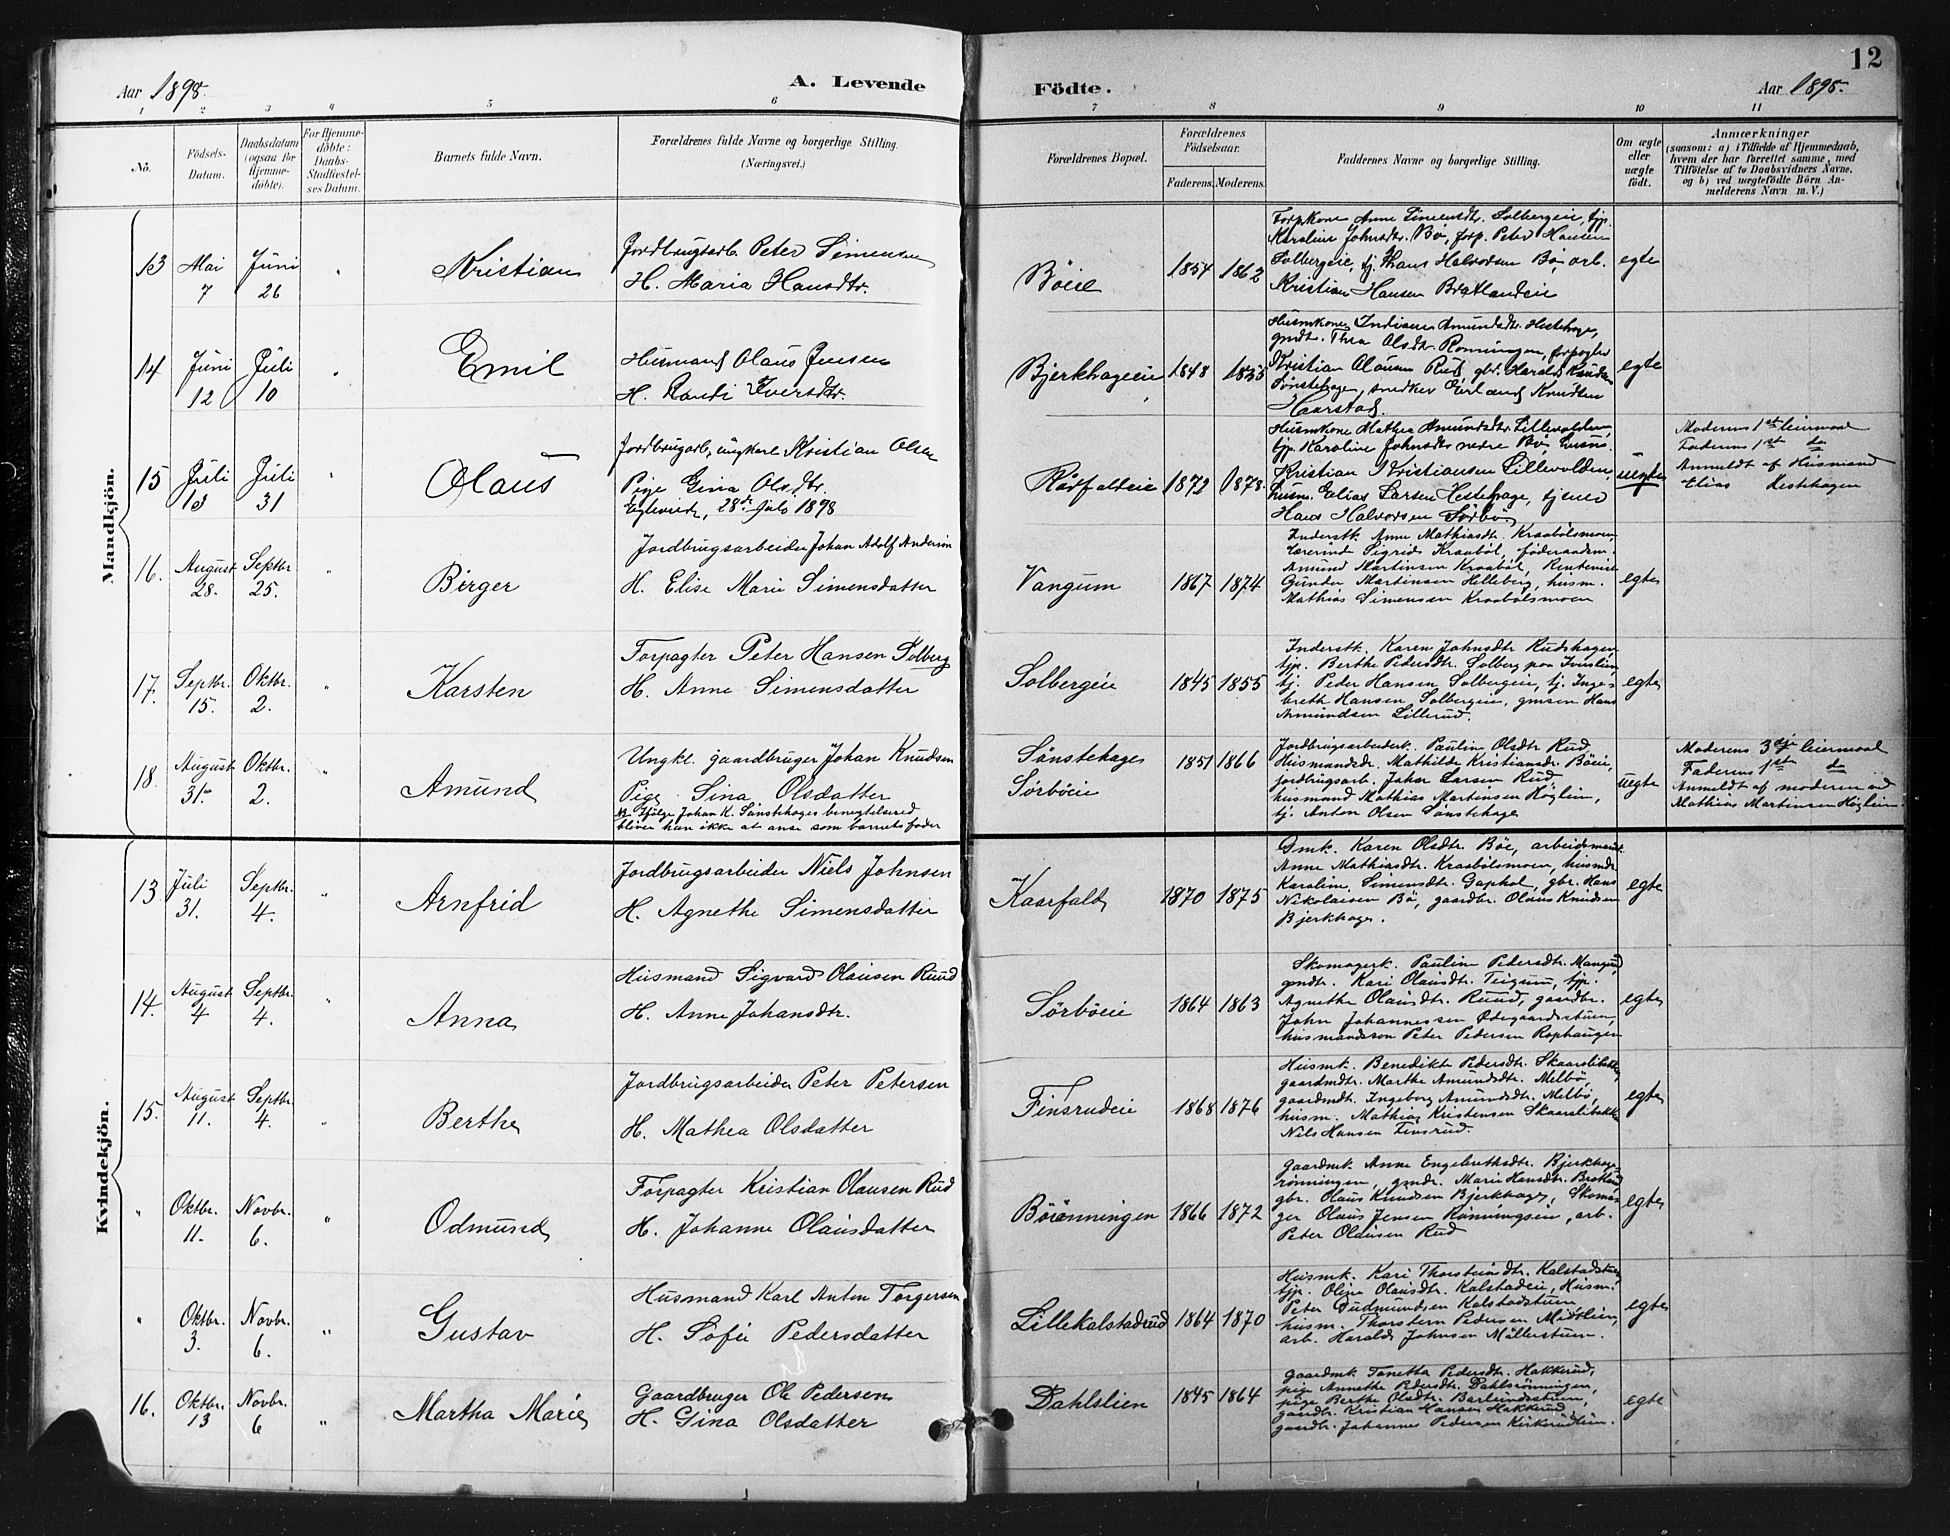 12
Aar 1898.
A. Levende Födte.
Aar 1898.
1 2 3 4 5 6 7 8 9 10 11
No.
Födsels-Datum.
Daabsdatum (ogsaa for Hjemme-döbte).
For Hjemme-döbte: Daabs-Stadfæstel-ses Datum.
Barnets fulde Navn.
Forældrenes fulde Navne og borgerlige Stilling. (Næringsvei.)
Forældrenes Bopæl.
Forældrenes Födselsaar.
Faderens. Moderens.
Faddernes Navne og borgerlige Stilling.
Om ægte eller uægte födt.
Anmærkninger
(saasom: a) i Tilfælde af Hjemmedaab, hvem der har forrettet samme, med Tilföielse af to Daabsvidners Navne, og b) ved uægtefödte Börn An-melderens Navn m. V.)
Mandkjön.
13 Mai 7 Juni 26 " Kristian
Jordbrugsarb. Peter Simensen
H. Maria Hansdtr.
Böeie 1854 1862
Forpkone Anne Simensdtr. Solbergeie, tjp.
Karoline Johnsdtr. Bö, forp. Peter Hansen
Solbergeie, tj. Hans Halvorsen Bö arb.
Kristian Hansen Brotlandeie
egte
14 Juni 12 Juli 10 " Emil
Husmand Olaus Jensen
H. Randi Iversdtr.
Bjerkhageeie 1848 1855
Husmkone Indiane Amundsdtr. Hestehage,
gmdt. Thea Olsdt. Rönningen, forpagter
Kristian Olausen Rud, gbr. Harald Knudsen
Sönstehage, snedker Erland Knudsen
Haarstad.
egte
15 Juli 13 Juli 31 " Olaus
Jordbrugarb., ungkarl Kristian Olsen
Pige Gina Olsdtr.
Egteviede, 28de Julo 1898
1872 1878.
Husmkone Mathea Amundsdtr. Lillevolden,
tjp. Karoline Johnsdtr nedre Bö, husm.
Kristian Kristiansen Lillevolden,
husm. Elias Larsen Hestehage, tjener
Hans Halvorsen Sörbö
uegte
Moderens 1st leiermaal
Faderens 1st do
Anmeldt af Husmand
Elias Hestehagen
16. August 28. Septbr 25. " Birger
Jordbrugsarbeider Johan Adolf Andersen
H. Elise Marie Simensdatter
Vangum 1867 1874
Inderstk. Anne Mathiasdt. Kraabölsmoen,
Lærerind Sigrid Kraaböl, föderaadsm.
Amund Martinsen Kraaböl, Rentenist
Gunder Martinsen Helleberg, husm.
Mathias Simensen Kraabölsmoen
egte
17. Septbr. 15. Oktbr. 2. " Karsten
Forpagter Peter Hansen Solberg
H. Anne Simensdatter
Solbergeie 1845 1855
Inderstk. Karen Johnsdtr Rudshagen
tjp. Berthe Pedersdtr. Solberg paa Iverslien
tj. Peder Hansen Solbergeie, tj. Inge-
breth Hansen Solbergeie, gmsön Hans
Amundsen Lillerud.
egte
18. August 31. Oktbr. 2. " Amund
Ungkl. gaardbruger Johan Knudsen
Pige Sina Olsdatter
NB. Ifölge Johan K. Sönstehages benegtelsesed
bliver han ikke at anse som barnets fader
Sönstehage
Sörböeie
1851 1866
Jordbrugsarbeiderk. Pauline Olsdtr Rud
Husmandsdr. Mathilde Kristiansdr. Böeie,
jordbrugsarb. Johan Larsen Rud,
husmand Mathias Martinsen Höglien,
tj. Anton Olsen Sönstehage
uegte
Moderens 3dje leiermaal
Faderens 1st do
Anmeldt af moderen ved
Mathias Martinsen Höglien
Kvindekjön.
13 Juli 31. Septbr. 4. " Arnfrid
Jordbrugsarbeider Niels Johnsen
H. Agnethe Simensdatter
Kaarfald 1870 1875
Gmk. Karen Olsdtr. Böe, arbeidsmand
Anne Mathiasdtr. Kraabölsmoen, husmdr.
Karoline Simensdtr. Gaphol, gbr. Hans
Nikolaisen Bö, gaardbr. Olaus Knudsen
Bjerkhage.
egte
14. August 4 Septbr. 4. " Anna
Husmand Sigvard Olausen Ruud
H. Anne Johansdtr.
Sörböeie 1864 1863
Skomagerk. Pauline Pedersdtr. Mangrud,
gmdt. Kari Olausdtr. Teigum, tjp.
Agnethe Olausdtr. Ruud, gaardbr.
John Johannessen Ödegaardsstuen,
husmandssön Peter Pedersen Rophaugen
egte
15. August 11. Septbr. 4. " Berthe
Jordbrugsarbeider Peter Petersen
H. Mathea Olsdatter
Finsrudeie 1868 1876
Husmk. Benedikte Pedersdtr. Skaarslibakke,
gaardmdtr. Marthe Amundsdtr. Melbö,
gaardmdt. Ingeborg Amundsdtr. Melbö,
husm. Mathias Kristensen Skaarslibakke,
Nils Hansen Finsrud.
egte
" Oktbr. 11. Novbr. 6. " Odmund
Forpagter Kristian Olausen Rud
H. Johanne Olausdatter
Börönningen 1866 1872
Gaardmk. Anne Engebrethsdtr. Bjerkhage-
rönningen, gmdr. Marie Hansdtr. Brotlund,
gbr. Olaus Knudsen Bjerkhage, Skoma-
ger Olaus Jensen Rönningseie, arb.
Peter Olausen Rud
egte
" Oktbr. 3. Novbr. 6. " Gustav
Husmand Karl Anton Torgersen
H. Sofie Pedersdatter
Lillekalstadrud 1864 1870
Husmk. Kari Thorstensdtr. Kalstadstuen,
tjp. Oline Olausdtr. Kalstadeie, Husm.
Peter Gudmundsen Kalstadstuen,
husm. Thorstern Pedersen Midtlien,
arb. Harald Johnsen Möllerstuen.
egte
16. Oktbr. 13 Novbr. 6 " Martha Marie
Gaardbruger Ole Pedersen
H. Gina Olsdatter
Dahlslien 1845 1864
Gaardmk. Tanetta Pedersdtr. Hakkerud,
pige Annethe Pedersdtr. Dahlsrönningen,
pige Berthe Olsdtr.
gaardbr. Kristian Hansen Hakkerud
gaardbr. Johannes Pedersen
egte